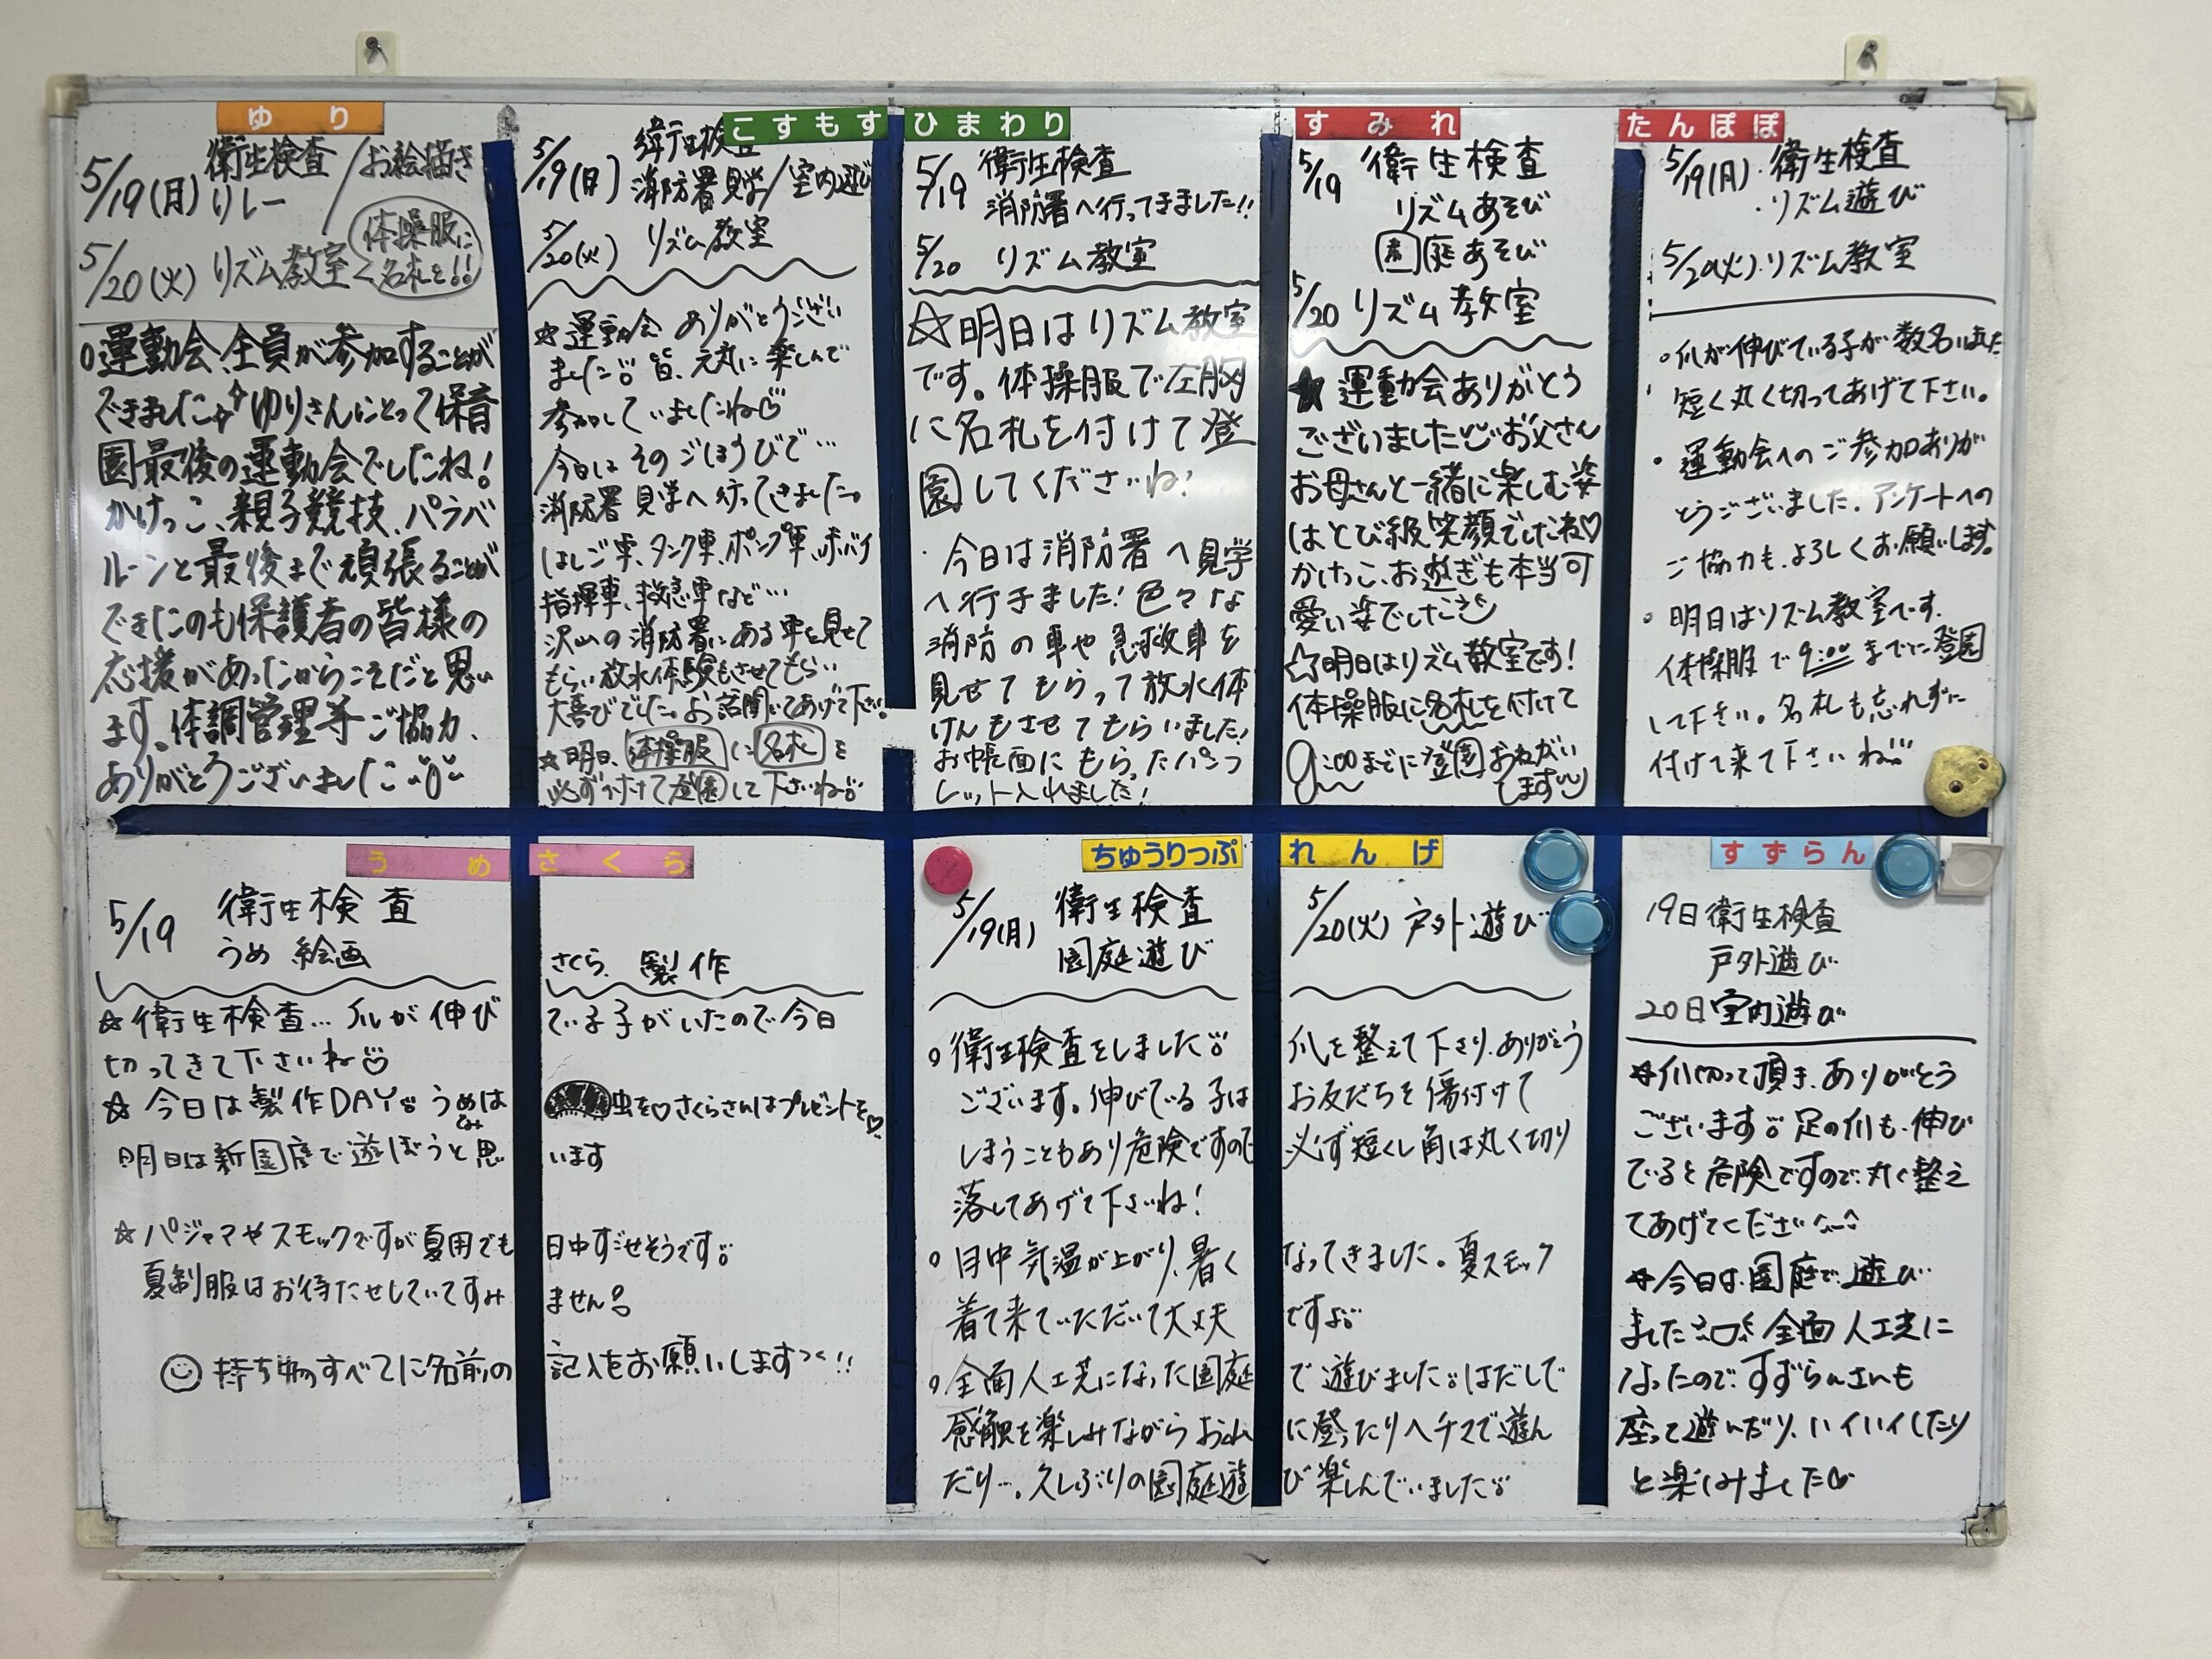 ゆり
5/19(月) 衛生検査 リレー / お絵描き
5/20(火) リズム教室 < 体操服に名札を!!
○運動会、全員が参加することが
できました ゆりさんにとって保育
園最後の運動会でしたね!
かけっこ、親子競技、パラバ
ルーンと最後まで頑張ることが
できたのも保護者の皆様の
応援があったからこそだと思い
ます。体調管理等ご協力、
ありがとうございました
こすもす
5/19(月) 衛生検査
消防署見学/室内遊び
5/20(火) リズム教室
☆運動会 ありがとうござい
ました。皆、元気に楽しんで
参加していましたね
今日は そのごほうびで…
消防署 見学へ行ってきました。
はしご車、タンク車、ポンプ車、赤バイ
指揮車、救急車など…
沢山の消防署にある車を見せて
もらい放水体験もさせてもらい
大喜びでした。お話聞いてあげて下さい。
☆明日、体操服に名札を
必ず付けて登園して下さいね
ひまわり
5/19 衛生検査
消防署へ行ってきました!!
5/20 リズム教室
☆明日はリズム教室
です。体操服で左胸
に名札を付けて登
園してくださいね!
・今日は消防署へ見学
へ行きました!色々な
消防の車や急救車を
見せてもらって放水体
けんもさせてもらいました!
お帳面にもらったパンフ
レット入れました!
すみれ
5/19 衛生検査
リズムあそび
園庭あそび
5/20 リズム教室
★運動会ありがとう
ございました お父さん
お母さんと一緒に楽しむ姿
はとび級笑顔でしたね♡
かけっこ、お遊ぎも本当可
愛い姿でした
☆明日はリズム教室です!
体操服に名札を付けて
9:00までに登園おねがい
します
たんぽぽ
5/19(月)・衛生検査
・リズム遊び
5/20(火)・リズム教室
○爪が伸びている子が数名いました
短く丸く切ってあげて下さい。
・運動会へのご参加ありが
とうございました。アンケートへの
ご協力も、よろしくお願いします。
○明日はリズム教室です。
体操服で9:00までに登園
して下さい。名札も忘れずに
付けて来て下さいね
うめ さくら
5/19 衛生検査
うめ 絵画 さくら 製作
☆衛生検査…爪が伸び ている子がいたので今日
切ってきて下さいね
☆今日は製作DAY。うめは 虫を♡さくらさんはプレゼントを♡
明日は新園庭で遊ぼうと思 います
☆パジャマやスモックですが夏用でも 日中すごせそうです。
夏制服はお待たせしていてすみ ません
持ち物すべてに名前の 記入をお願いします!!
ちゅうりっぷ れんげ
5/19(月) 衛生検査 園庭遊び 5/20(火) 戸外遊び
○衛生検査をしました。 爪を整えて下さり、ありがとう
ございます。伸びている子は お友だちを傷付けて
しまうこともあり危険ですので 必ず短くし角は丸く切り
落してあげて下さいね!
○日中気温が上がり、暑く なってきました。夏スモック
着て来ていただいて大丈夫 ですよ
○全面人工芝になった園庭 で遊びました。はだしで
感触を楽しみながらお山 に登ったりヘチマで遊ん
だり…。久しぶりの園庭遊 び楽しんでいました。
すずらん
19日 衛生検査
戸外遊び
20日 室内遊び
☆爪切って頂き、ありがとう
ございます。足の爪も、伸び
ていると危険ですので、丸く整え
てあげてください
☆今日は、園庭で遊び
ました 全面人工芝に
なったので、すずらんさんも
座って遊んだり、ハイハイしたり
と楽しみました